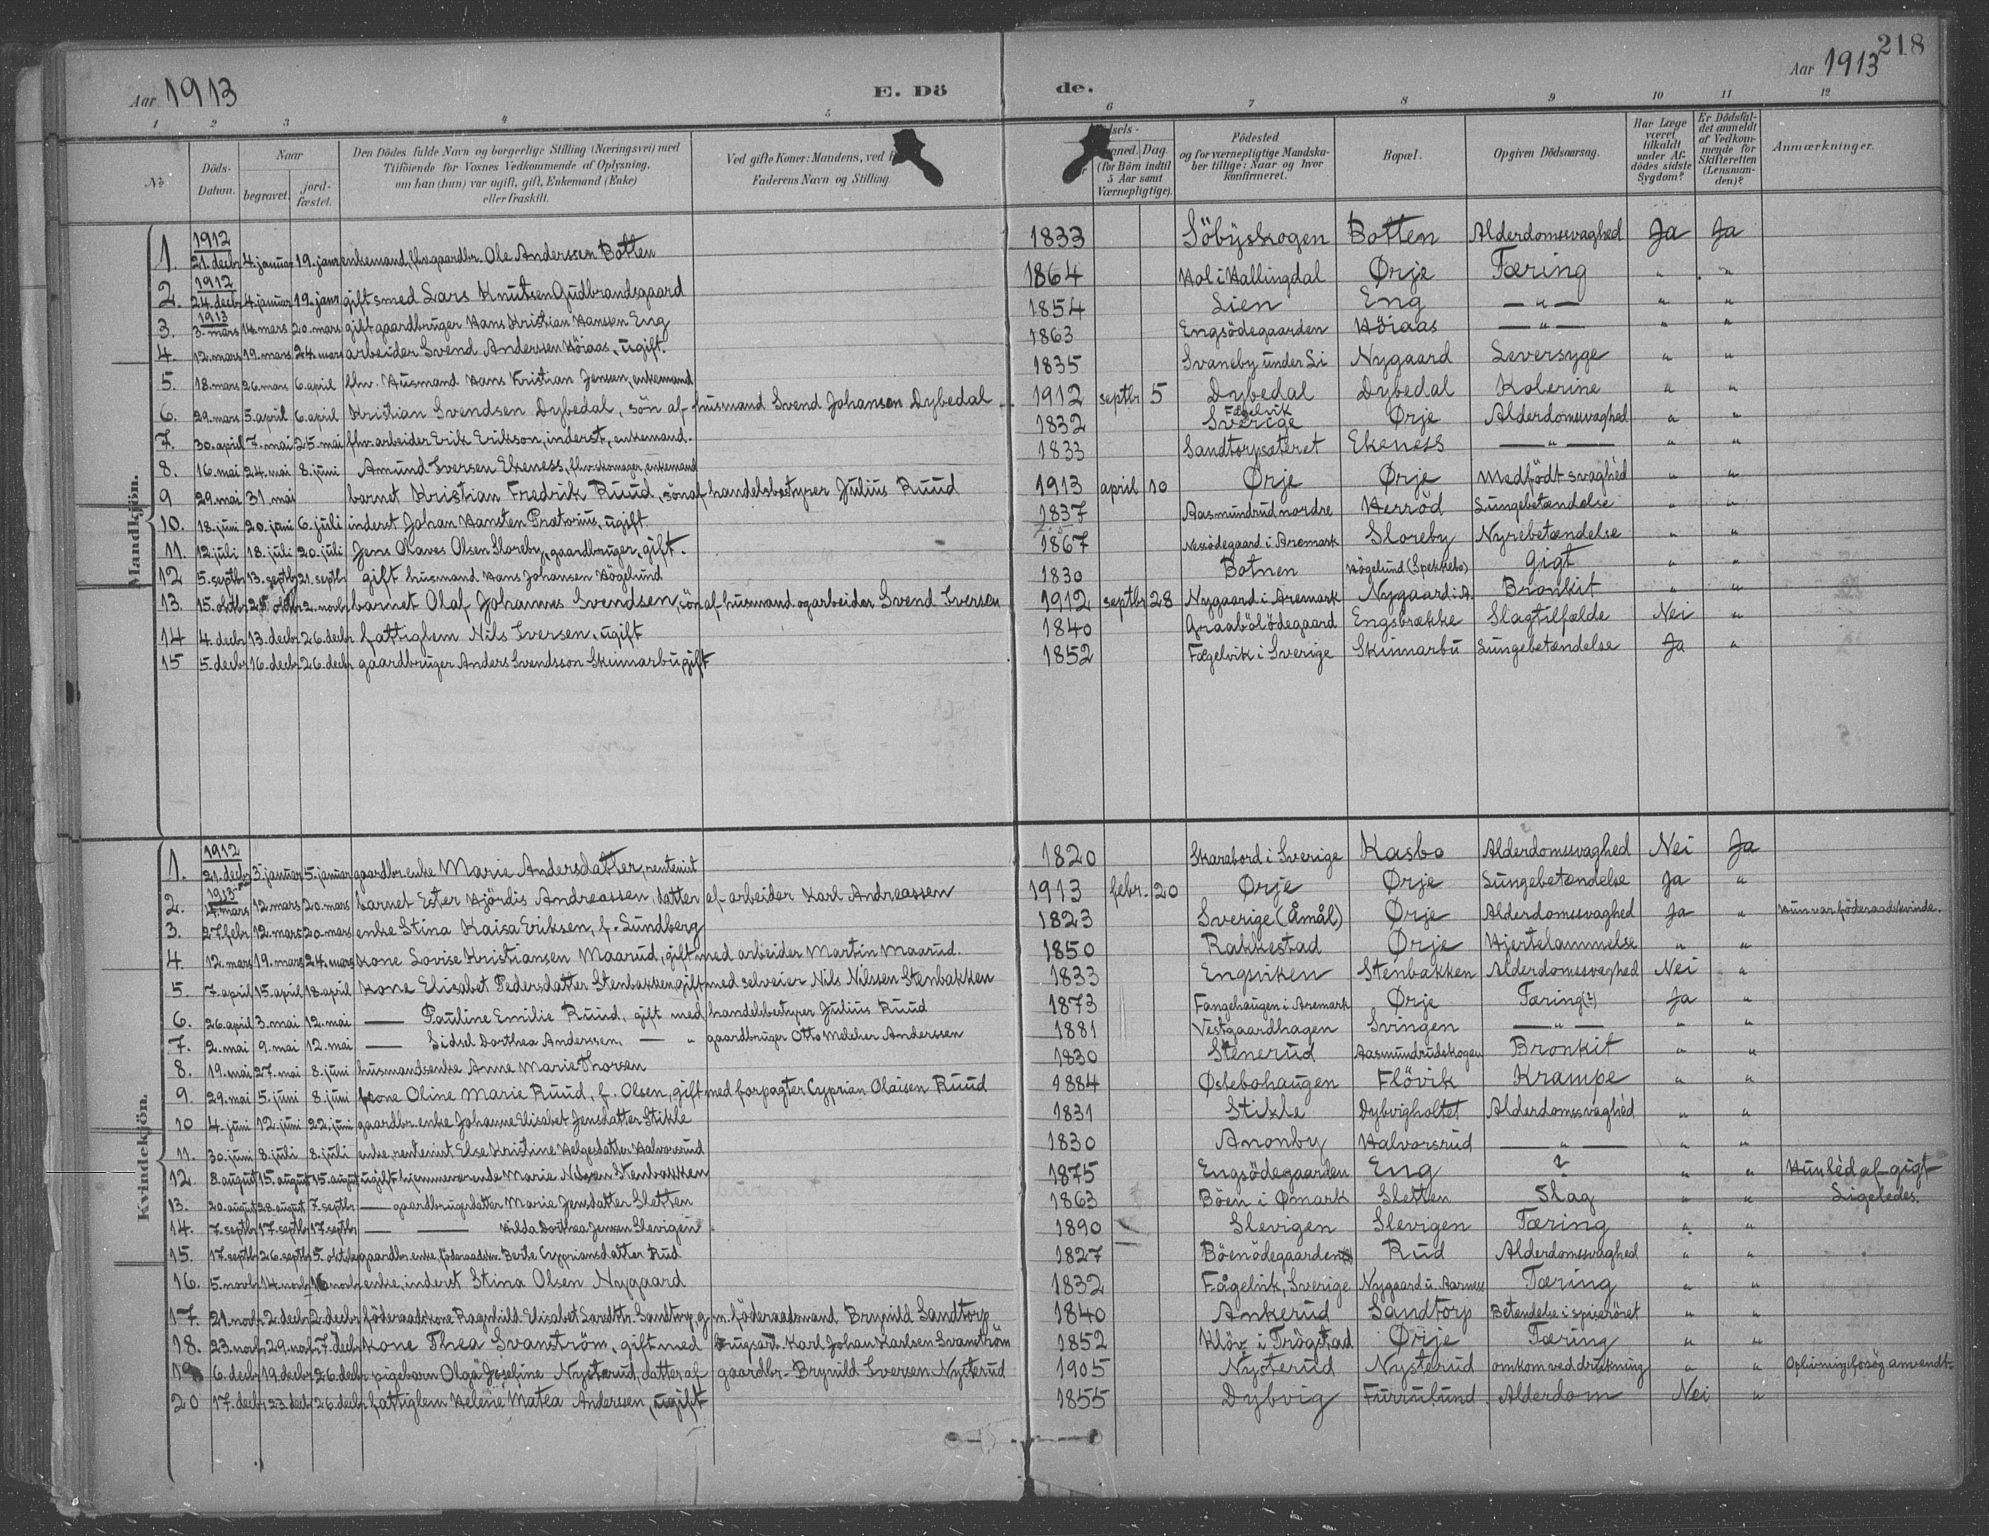 218
Aar 1913 E. Dö de. Aar 1913
1 2 3 4 5 6 7 8 9 10 11 12
No. Döds-Datum. Naar begravet. jord-fæstet. Den Dödes fulde Navn og borgerlige Stilling (Næringsvei) med Tilföiende for Voxnes Vedkommende af Oplysning, om han (hun) var ugift, gift, Enkemand (Enke) eller fraskilt. Ved gifte Koner: Mandens, ved Faderens Navn og Stilling. Dag. (for Börn indtil 5 Aar samt Værnepligtige). Födested og for værnepligtige Mandskaber tillige: Naar og hvor konfirmeret. Bopæl. Opgiven Dödsaarsag. Har Læge været tilkaldt under Afdödes sidste Sygdom? Er Dödsfaldet anmeldt af Vedkommende for Skifteretten (Lensmanden)? Anmærkninger.
Mandkjön.
1. 1912 21. decbr 4. januar 19. janr enkemand, fhv. gaardbr. Ole Anderssen Botten 1833 Söbyskogen Botten Alderdomssvaghed Ja Ja
2. 1912 24. decbr 4. januar 19. janr gift smed Lars Knutsen Gudbrandsgaard 1864 Hol i Hallingdal Ørje Tæring " "
3. 1913 3. mars 14. mars 20. mars gift gaardbruger Hans Kristian Hansen Eng 1854 Lien Eng — " — " "
4. 12. mars 19. mars 24. mars arbeider Svend Anderssen Höiaas, ugift. 1863 Engsödegaarden Höiaas — " — " "
5. 18. mars 26. mars 6. april fhv. Husmand Hans Kristian Jensen, enkemand 1835 Svaneby under Li Nygaard Leversyge " "
6. 29. mars 5. april 6. april Kristian Svendsen Dybedal, sön af husmand Svend Johansen Dybedal 1912 septbr 5 Dybedal Dybedal Kolerine " "
7. 30. april 7. mai 25. mai fhv. arbeider Erik Erikson, inderst, enkemand. 1832 Fægelvik Sverige Ørje Alderdomssvaghed " "
8. 16. mai 24. mai 8. juni Amund Iversen Ekeness, fhv. skomager, enkemand 1833 Sandtorpsæteret Ekeness — " — " "
9 29. mai 31. mai barnet Kristian Fredrik Ruud, sön af handelsbestyrer Julius Ruud 1913 april 10 Ørje Ørje Medfödt svaghed " "
10. 18. juni 20. juni 6. juli inderst Johan Hansten Prætorius, ugift. 1837 Aasmundrud nordre Herröd Lungebetændelse " "
11. 12. juli 18. juli 20. juli Jens Olaves Olsen Sloreby, gaardbruger, gift. 1867 Nessödegaard i Aremark Sloreby Nyrebetændelse " "
12 5. septbr 13. septbr 21. septbr gift husmand Hans Johansen Högelund 1830 Botnen Högelund (Spekkebo) Gigt " "
13. 15. oktbr 2. novbr barnet Olaf Johannes Svendsen, sön af husmand og arbeider Svend Iversen 1912 septbr 28 Nygaard i Aremark Nygaard i A. Bronkit " "
14 4. decbr 13. decbr 26. decbr fattiglem Nils Iversen, ugift 1840 Graabölödegaard Engsbrække Slagtilfælde Nei "
15 5. decbr 16. decbr 26. decbr gaardbruger Anders Svendsson Skinnarbu, gift 1852 Fægelvik i Sverige Skinnarbu Lungebetændelse Ja "
Kvindekjön.
1. 1912 21. decbr 3. januar 5. januar gaardbr. enke Marie Andersdatter, rentenist 1820 Skarabord i Sverige Kasbo Alderdomssvaghed Nei Ja
2. 1913 4. mars 12. mars 20. mars barnet Ester Hjördis Andreassen, datter af arbeider Karl Andreassen 1913 febr. 20 Ørje Ørje Lungebetændelse Ja "
3. 27. febr 12. mars 20. mars enke Stina Kaisa Eriksen, f. Lundberg 1823 Sverige (Åmål) Ørje Alderdomssvaghed Ja " Hun var föderaadskvinde.
4. 12. mars 19. mars 24. mars kone Lovise Kristiansen Maarud, gift med arbeider Martin Maarud. 1850 Rakkestad Ørje Hjertelammelse " "
5. 7. april 15. april 18. april kone Elisabet Pedersdatter Stenbakken gift med selveier Nils Nilssen Stenbakken 1833 Engviken Stenbakken Alderdomssvaghed Nei "
6. 26. april 3. mai 12. mai — Pauline Emilie Ruud, gift med handelsbestyrer Julius Ruud 1873 Fangehaugen i Aremark Ørje Tæring (?) Ja "
7. 2. mai 9. mai 12. mai — Sidsel Dorthea Anderssen, — " gaardbruger Otto Melcher Anderssen 1881 Vestgaardhagen Svingen — " — " "
8. 19. mai 27. mai 8. juni husmandsenke Anne Marie Thorsen 1830 Stenerud Aasmundrudskogen Bronkit " "
9. 29. mai 5. juni 8. juni kone Oline Marie Ruud, f. Olsen, gift med forpagter Cyprian Olaisen Ruud 1884 Østebohaugen Flövik Krampe " "
10 4. juni 12. juni 22. juni gaardbr. enke Johanne Elisabet Jensdatter Stikle 1831 Stikle Dybvigholtet Alderdomssvaghed " "
11. 30. juni 8. juli 8. juli enke, rentenist Else Kristine Helgesdatter Halvorsrud 1830 Anonby Halvorsrud — " — " "
12. 8. august 15. august 15. august ugift hjemmeværende Marie Nilsen Stenbakken 1875 Engsödegaarden Eng ? " " Hun led af gigt
13. 20. august 28. august 7. septbr — gaardbrugerdatter Marie Jensdatter Sletten 1863 Böen i Ømark Sletten Slag " " Ligeledes.
14. 7. septbr 17. septbr 17. septbr — — Hilda Dorthea Jensen Slevigen 1890 Slevigen Slevigen Tæring " "
15. 17. septbr 26. septbr 5. oktober gaardbr. enke, föderaadskv. Berte Cypriansdatter Rud 1827 Böenödegaarden Rud Alderdomssvaghed " "
16. 5. novbr 14. novbr 16 novbr enke, inderst Stina Olsen Nygaard 1832 Fågelvik, Sverige Nygaard u. Aarnes Tæring " "
17. 21. novb 2. decbr 2. decbr föderaadskone Ragnhild Elisabet Larsdtr. Sandtorp, g. m. föderaadsmand Brynild Sandtorp 1840 Ankerud Sandtorp Betændelse i spiseröret " "
18. 23. novb 29. novb 7. decbr kone Thea Svanström, gift med brugsarb. Karl Johan Karlsen Svanström 1852 Klöv i Trögstad Ørje Tæring " "
19 6. decbr 19. decbr 26. decbr pigebarn Olga Josefine Nysterud, datter af gaardbr. Brynild Iversen Nysterud 1905 Nysterud Nysterud omkom ved drukning " " Oplivningsforsög anvendt.
20 17. decbr 23. decbr 26. decbr fattiglem Helene Matea Anderssen, ugift 1855 Dybvig Furrulund Alderdom Nei "